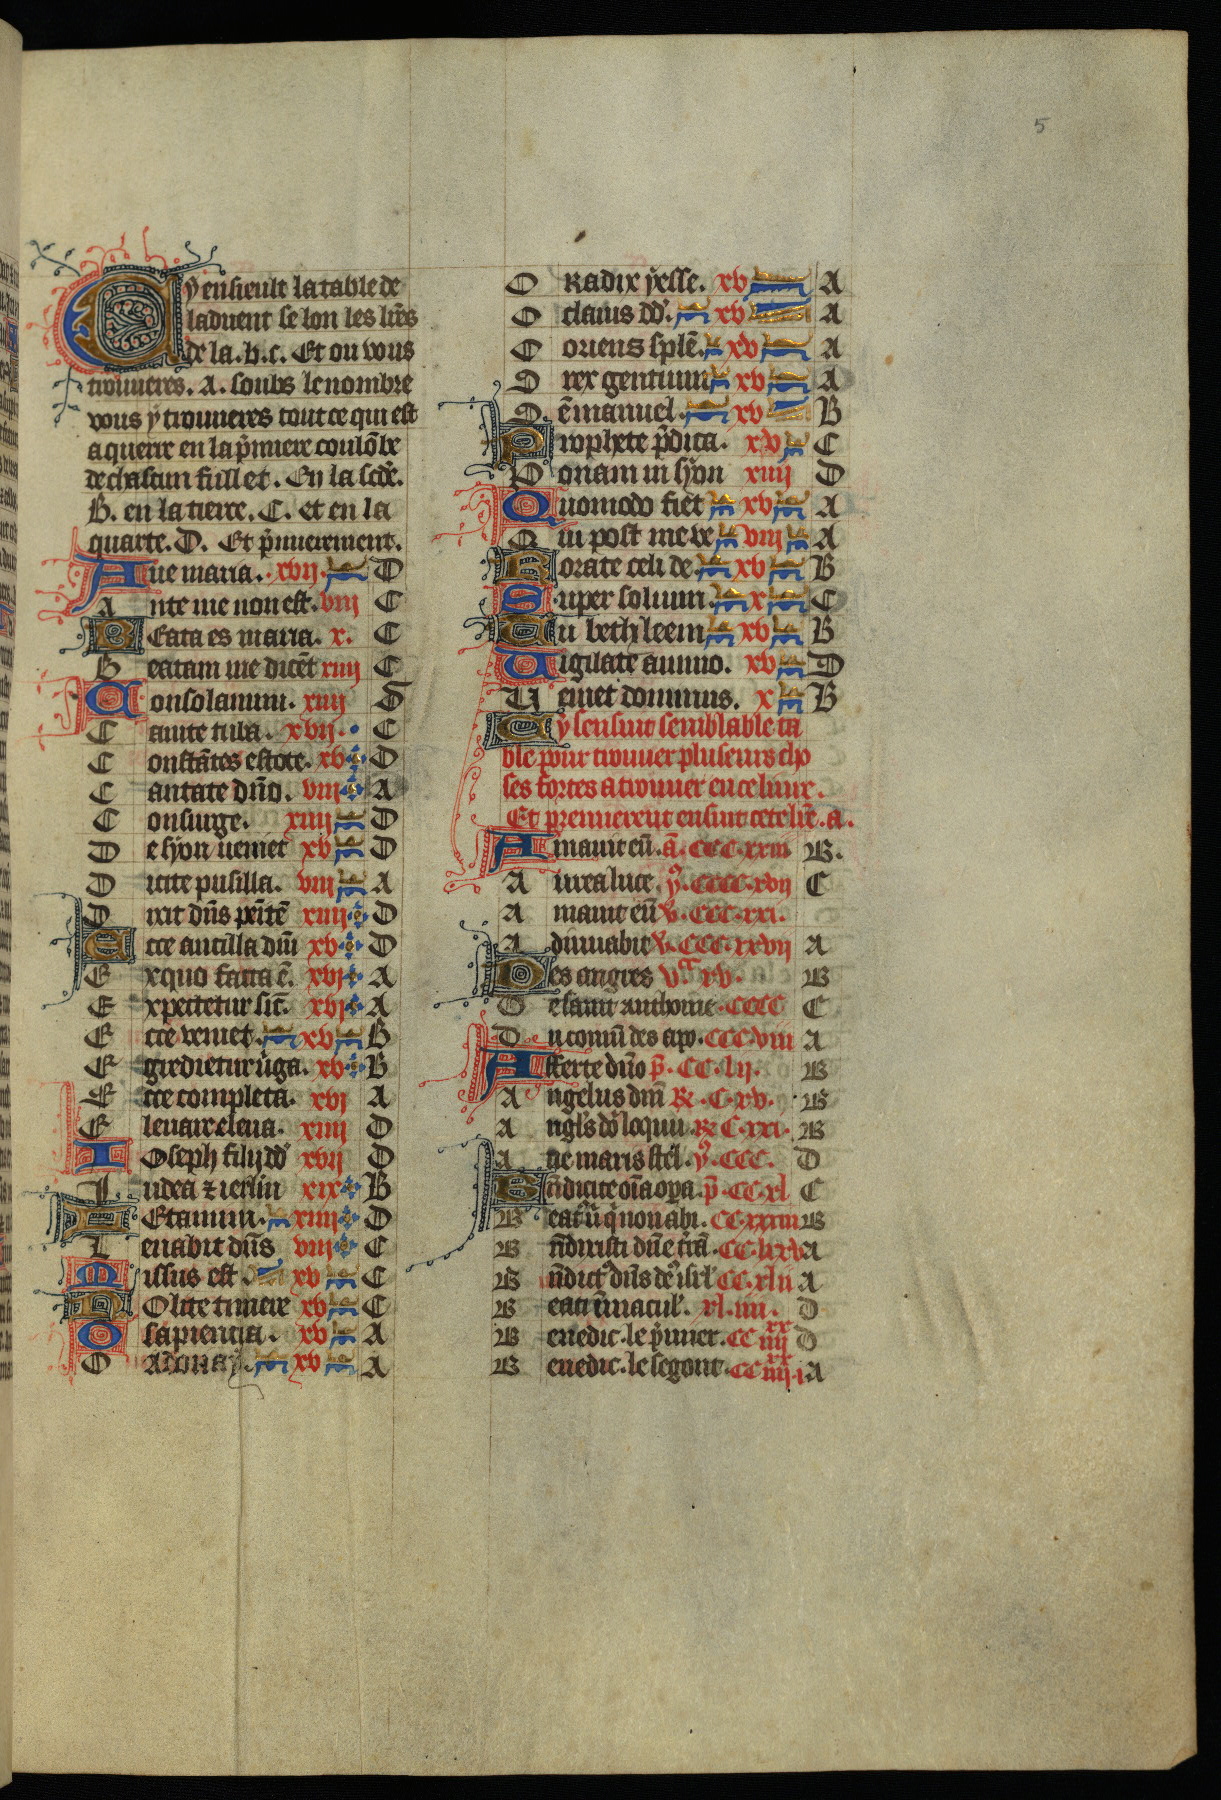 Cy ensieult la table de
laduent se lon les lr̄es
de la .b.c. Et ou vous
trouueres .A. soubs le nombre
vous ÿ trouueres tout ce qui est
a querre en la p̄miere coulōbe
de chascun fuillet. En la scde.
B. en la tierce. C. et en la
quarte. D. Et p̄mierement.
Aue maria. xvij. D
Ante me non est. viij C
Beata es maria. x. C
Beatam me dicēt xiiij C
Consolamini. xiiij D
Canite tuba. xvij. C
Constātes estote. xv D
Cantate dn̄o. viij A
Consurge. xiiij D
De sÿon ueniet xv D
Dicite pusilla. viij A
Dixit dn̄s xiiij D
Ecce ancilla dn̄i xv D
Exquo facta ē. xvj A
Expectetur sic̄. xvj A
Ecce veniet. xv B
Egredietur ūga. xv B
Ecce completa. xvj A
Eleuare eleua. xiiij D
Ioseph filij dd̄ xvij D
Iudea z ierlm̄ xix B
Letamini. xiiij D
Leuabit dn̄s viij C
Missus est xv C
Nolite timere xv C
O sapientia. xv A
O Adonaÿ. xv A
O Radix ÿesse. xv A
O clauis dd̄. xv A
O oriens splē. xv A
O rex gentium xv A
O ēmanuel. xv B
Prophete p̄dica. xv C
Ponam in sÿon xiiij D
Quomodo fiet xv A
Qui post me ve viij A
Rorate celi de xv B
Super solium. x C
Tu bethleem xv B
Uigilate animo. xv D
Ueniet dominus. x B
Cÿ sensuit semblable ta
ble pour trouuer pluseurs cho
ses fortes a trouuer en ce liure.
Et premierent ensiut cete lr̄e .a.
Amauit eū. ā. CCC. xxiij B.
Aurea luce. ÿ. CCCC. xvij C
Amauit eū CCC. xxi.
Adiuuabit CCC. xxvij A
Des angres xv. B
De saint anthoine. CCCC C
Du comū des apo. CCC. viij A
Afferte dn̄o p̄. CC. lij. B
Angelus dn̄i R. C. xv. B
Angl's dn̄i loquu. R C. xxi. B
Aue maris stel'. ÿ. CCC. D
Bn̄dicite oīa opa. p̄. CC. xl C
Beat' ū q̄ non abi. CC. xxxiij B
Bn̄dixisti dn̄e t̄rā. CC. lxxv A
Bn̄dict' dn̄s de' isrl' CC. xlij A
Beati īmacul'. xl. iiij. D
Benedic. le p̄mier. CC iiij xx D
Benedic. le segont. CC iiij xx i A
5